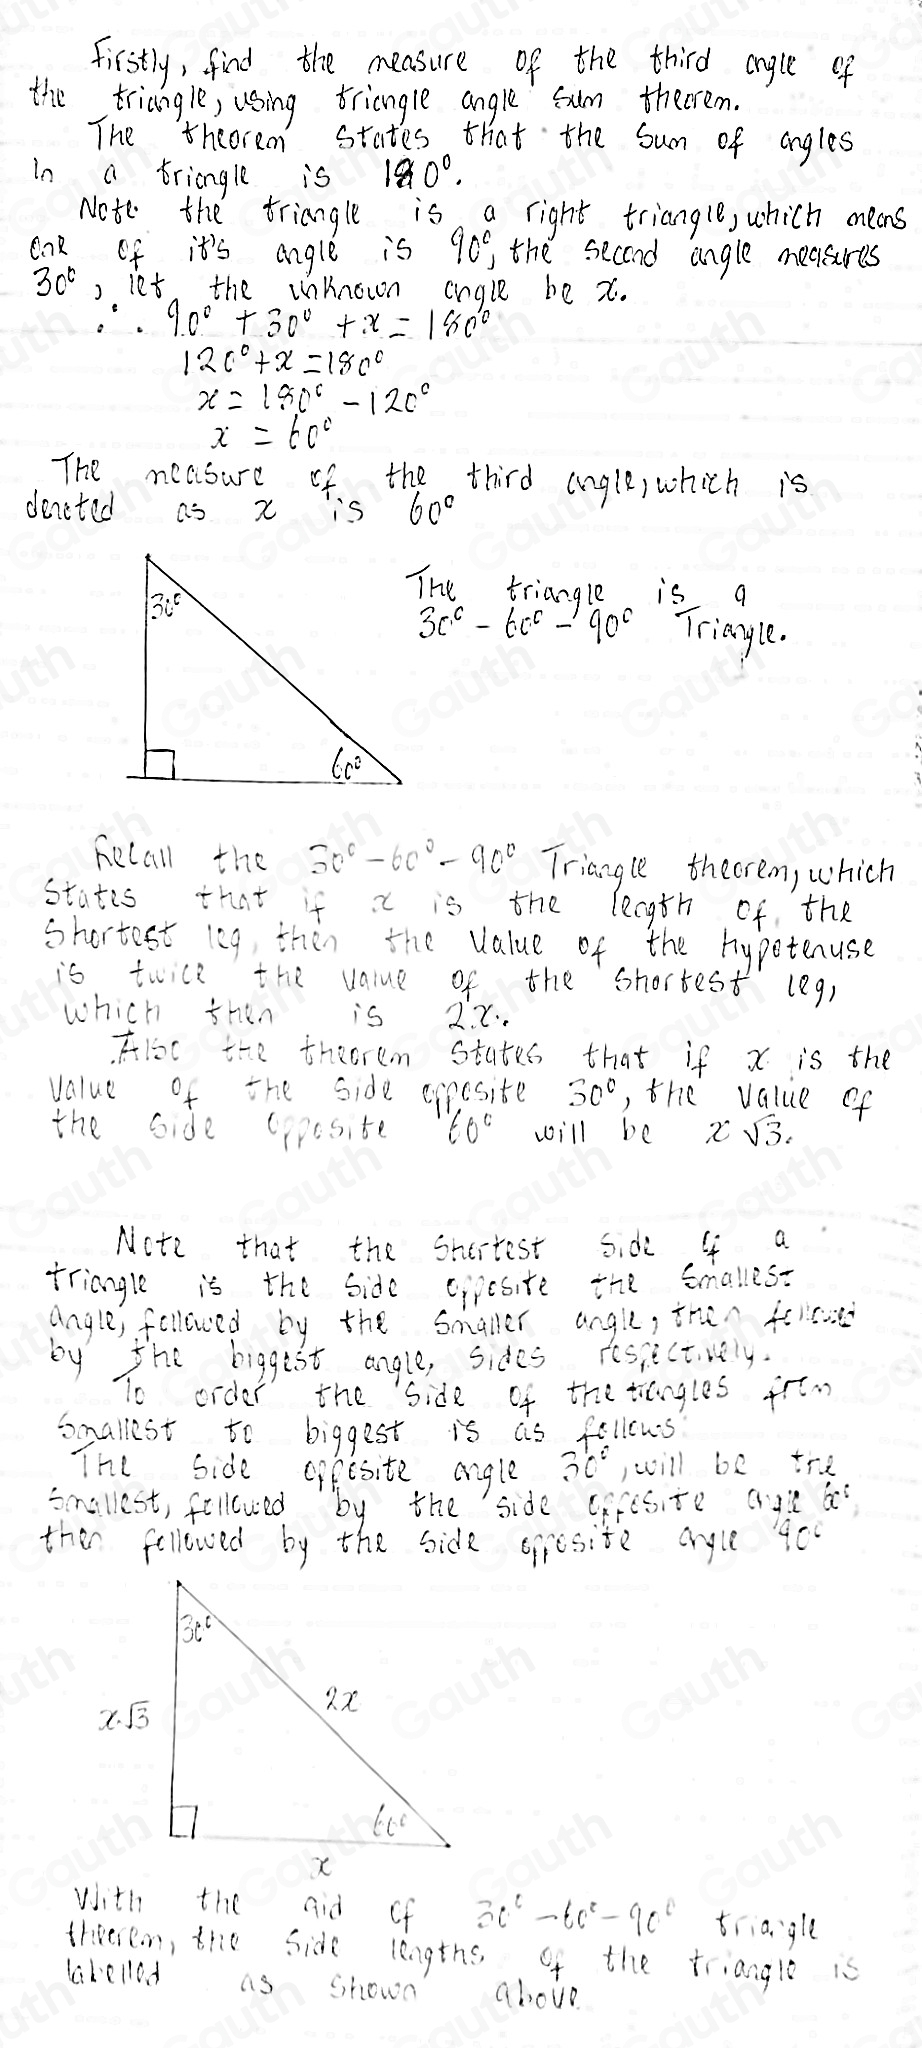 Firstly, find the measure of the third angle of
the triangle, using triangle angle sum theorem.
The theorem states that the sum of angles
in a triangle is 180°.
Note the triangle is a right triangle, which means
one of it's angle is 90°, the second angle measures
30°, let the unknown angle be x.
∴ 90° + 30° + x = 180°
120° + x = 180°
x = 180° - 120°
x = 60°
The measure of the third angle, which is
denoted as x is 60°
30°
60°
The triangle is a
30° - 60° - 90° Triangle.
Recall the 30° - 60° - 90° Triangle theorem, which
states that if x is the length of the
shortest leg, then the value of the hypotenuse
is twice the value of the shortest leg,
which then is 2x.
Also the theorem states that if x is the
value of the side opposite 30°, the value of
the side opposite 60° will be x√3.
Note that the shortest side of a
triangle is the side opposite the smallest
angle, followed by the smaller angle, then followed
by the biggest angle, sides respectively.
To order the side of the triangles from
smallest to biggest is as follows:
The side opposite angle 30°, will be the
smallest, followed by the side opposite angle 60°,
then followed by the side opposite angle 90°
30°
x√3
2x
60°
x
With the aid of 30° - 60° - 90° triangle
theorem, the side lengths of the triangle is
labelled as shown above.